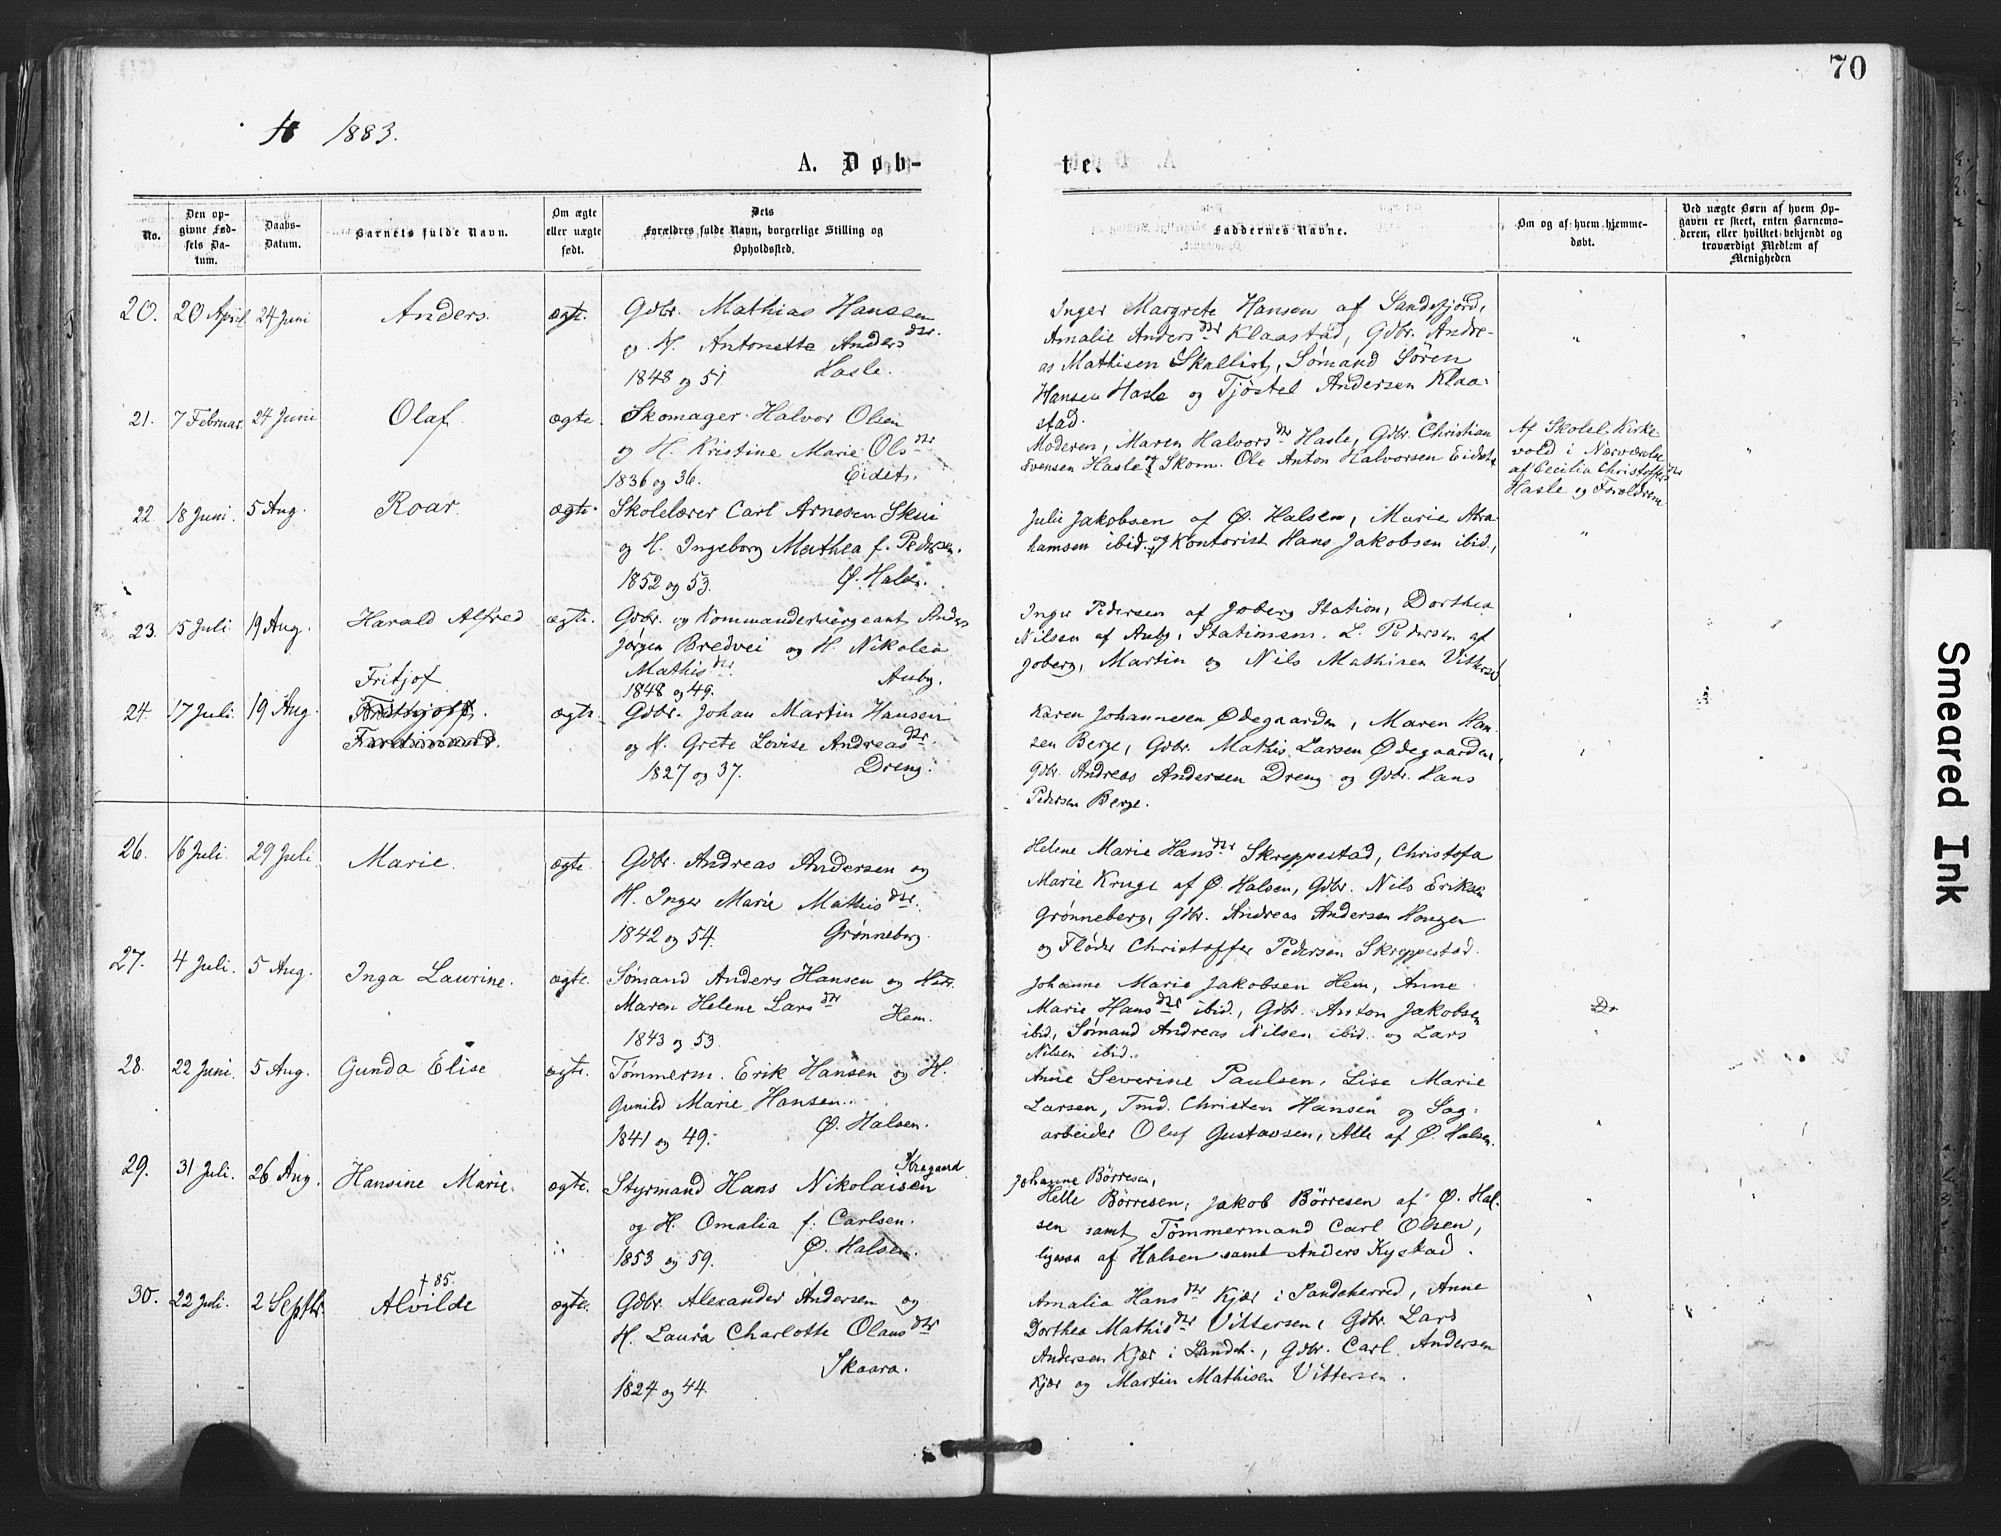 70
1883.
A. Døb-
te.
No.
Den op-
givne Fød-
sels Da-
tum.
Daabs-
Datum.
Barnets fulde Navn.
Om ægte
eller uægte
født.
Dets
Forældres fulde Navn, borgerlige Stilling og
Opholdssted.
Faddernes Navne.
Om og af hvem hjemme-
døbt.
Ved uægte Børn af hvem Op-
gaven er skeet, enten Barnemo-
deren, eller hvilket bekjendt og
troværdigt Medlem af
Menigheden
20. 20 April 24 Juni Anders. ægte. Gdbr. Mathias Hansen
og H. Antonette Andersdtr.
1848 og 51 Hasle.
Inger Margrete Hansen af Sandefjord,
Amalie Andersdtr Klaastad, Gdbr. Andre-
as Mathisen Skallist, Sømand Sören
Hansen Hasle og Tjöstel Andersen Klaa-
stad.
21. 7 Februar. 24 Juni Olaf. ægte. Skomager Halvor Olsen
og H. Kristine Marie Olsdtr
1836 og 36. Eidet.
Moderen, Maren Halvorsdtr Hasle, Gdbr. Christian
Evensen Hasle og Skom. Ole Anton Halvorsen Eidet.
Af Skolel. Kirke-
vold i Nærværelse
af Cecilia Christoffersdtr
Hasle og Forældrene
22. 18 Juni. 5 Aug. Roar. ægte. Skolelærer Carl Arnesen Skui
og H. Ingeborg Mathea f. Pedersen.
1852 og 53. Ø. Halsen.
Julie Jakobsen af Ø. Halsen, Marie Abra-
hamsen ibid. og Kontorist Hans Jakobsen ibid,
23. 15 Juli. 19 Aug. Harald Alfred ægte. Gdbr. og Kommandersergeant Anders
Jørgen Bredvei og H. Nikolea
Mathisdtr. Auby.
1848 og 49.
Inger Pedersen af Joberg Station, Dorthea
Nilsen af Auby, Stationsm. L. Pedersen af
Joberg, Martin og Nils Mathisen
24. 17 Juli. 19 Aug. Fritjof
Ferdinand. ægte. Gdbr. Johan Martin Hansen
og H. Grete Lovise Andreasdtr.
1827 og 37. Dreng.
Karen Johannesen Ødegaarden, Maren Han-
sen Berge, Gdbr. Mathis Larsen Ødegaarden,
Gdbr. Andreas Andersen Dreng og Gdbr. Hans
Pedersen Berge.
26. 16 Juli. 29 Juli. Marie. ægte. Gdbr. Andreas Andersen og
H. Inger Marie Mathisdtr.
1842 og 54. Grønneberg.
Helene Marie Hansdtr Skreppestad, Christofa
Marie Kruge af Ø. Halsen, Gdbr. Nils Eriksen
Grønneberg, Gdbr. Andreas Andersen Haugen
og Fløder Christoffer Pedersen Skreppestad.
27. 4 Juli. 5 Aug. Inga Laurine. ægte. Sømand Anders Hansen og
Maren Helene Larsdtr Hem.
1843 og 53.
Johanne Marie Jakobsen Hem, Anne
Marie Hansdtr ibid., Gdbr. Anton Jakobsen
ibid, Sømand Andreas Nilsen ibid. og Lars
Nilsen ibid.
28. 22 Juni. 5 Aug. Gunda Elise ægte. Tømmerm. Erik Hansen og H.
Gunild Marie Hansen.
1841 og 49. Ø. Halsen.
Anne Severine Paulsen, Lise Marie
Larsen, Tmd. Christen Hansen og Sag-
arbeider Oluf Gustavsen, Alle af Ø. Halsen.
29. 31 Juli. 26 Aug. Hansine Marie. ægte. Styrmand Hans Nikolaisen Kragaard
og H. Omalia f. Carlsen.
1853 og 59. Ø. Halsen.
Johanne Börresen,
Helle Börresen, Jakob Börresen af Ø. Hal-
sen samt Tømmermand Carl Olsen,
ligesaa af Halsen samt Anders Kystad.
30. 22 Juli. 2 Septbr. Alvilde † 85. ægte. Gdbr. Alexander Andersen og
H. Laura Charlotte Olausdtr
Skaara.
1824 og 44.
Amalia Hansdtr Kjær i Sandeherred, Anne
Dorthea Mathisdtr Vittersen, Gdbr. Lars
Andersen Kjær i Sandeh., Gdbr. Carl Andersen
Kjær og Martin Mathisen Vittersen.
Smeared Ink